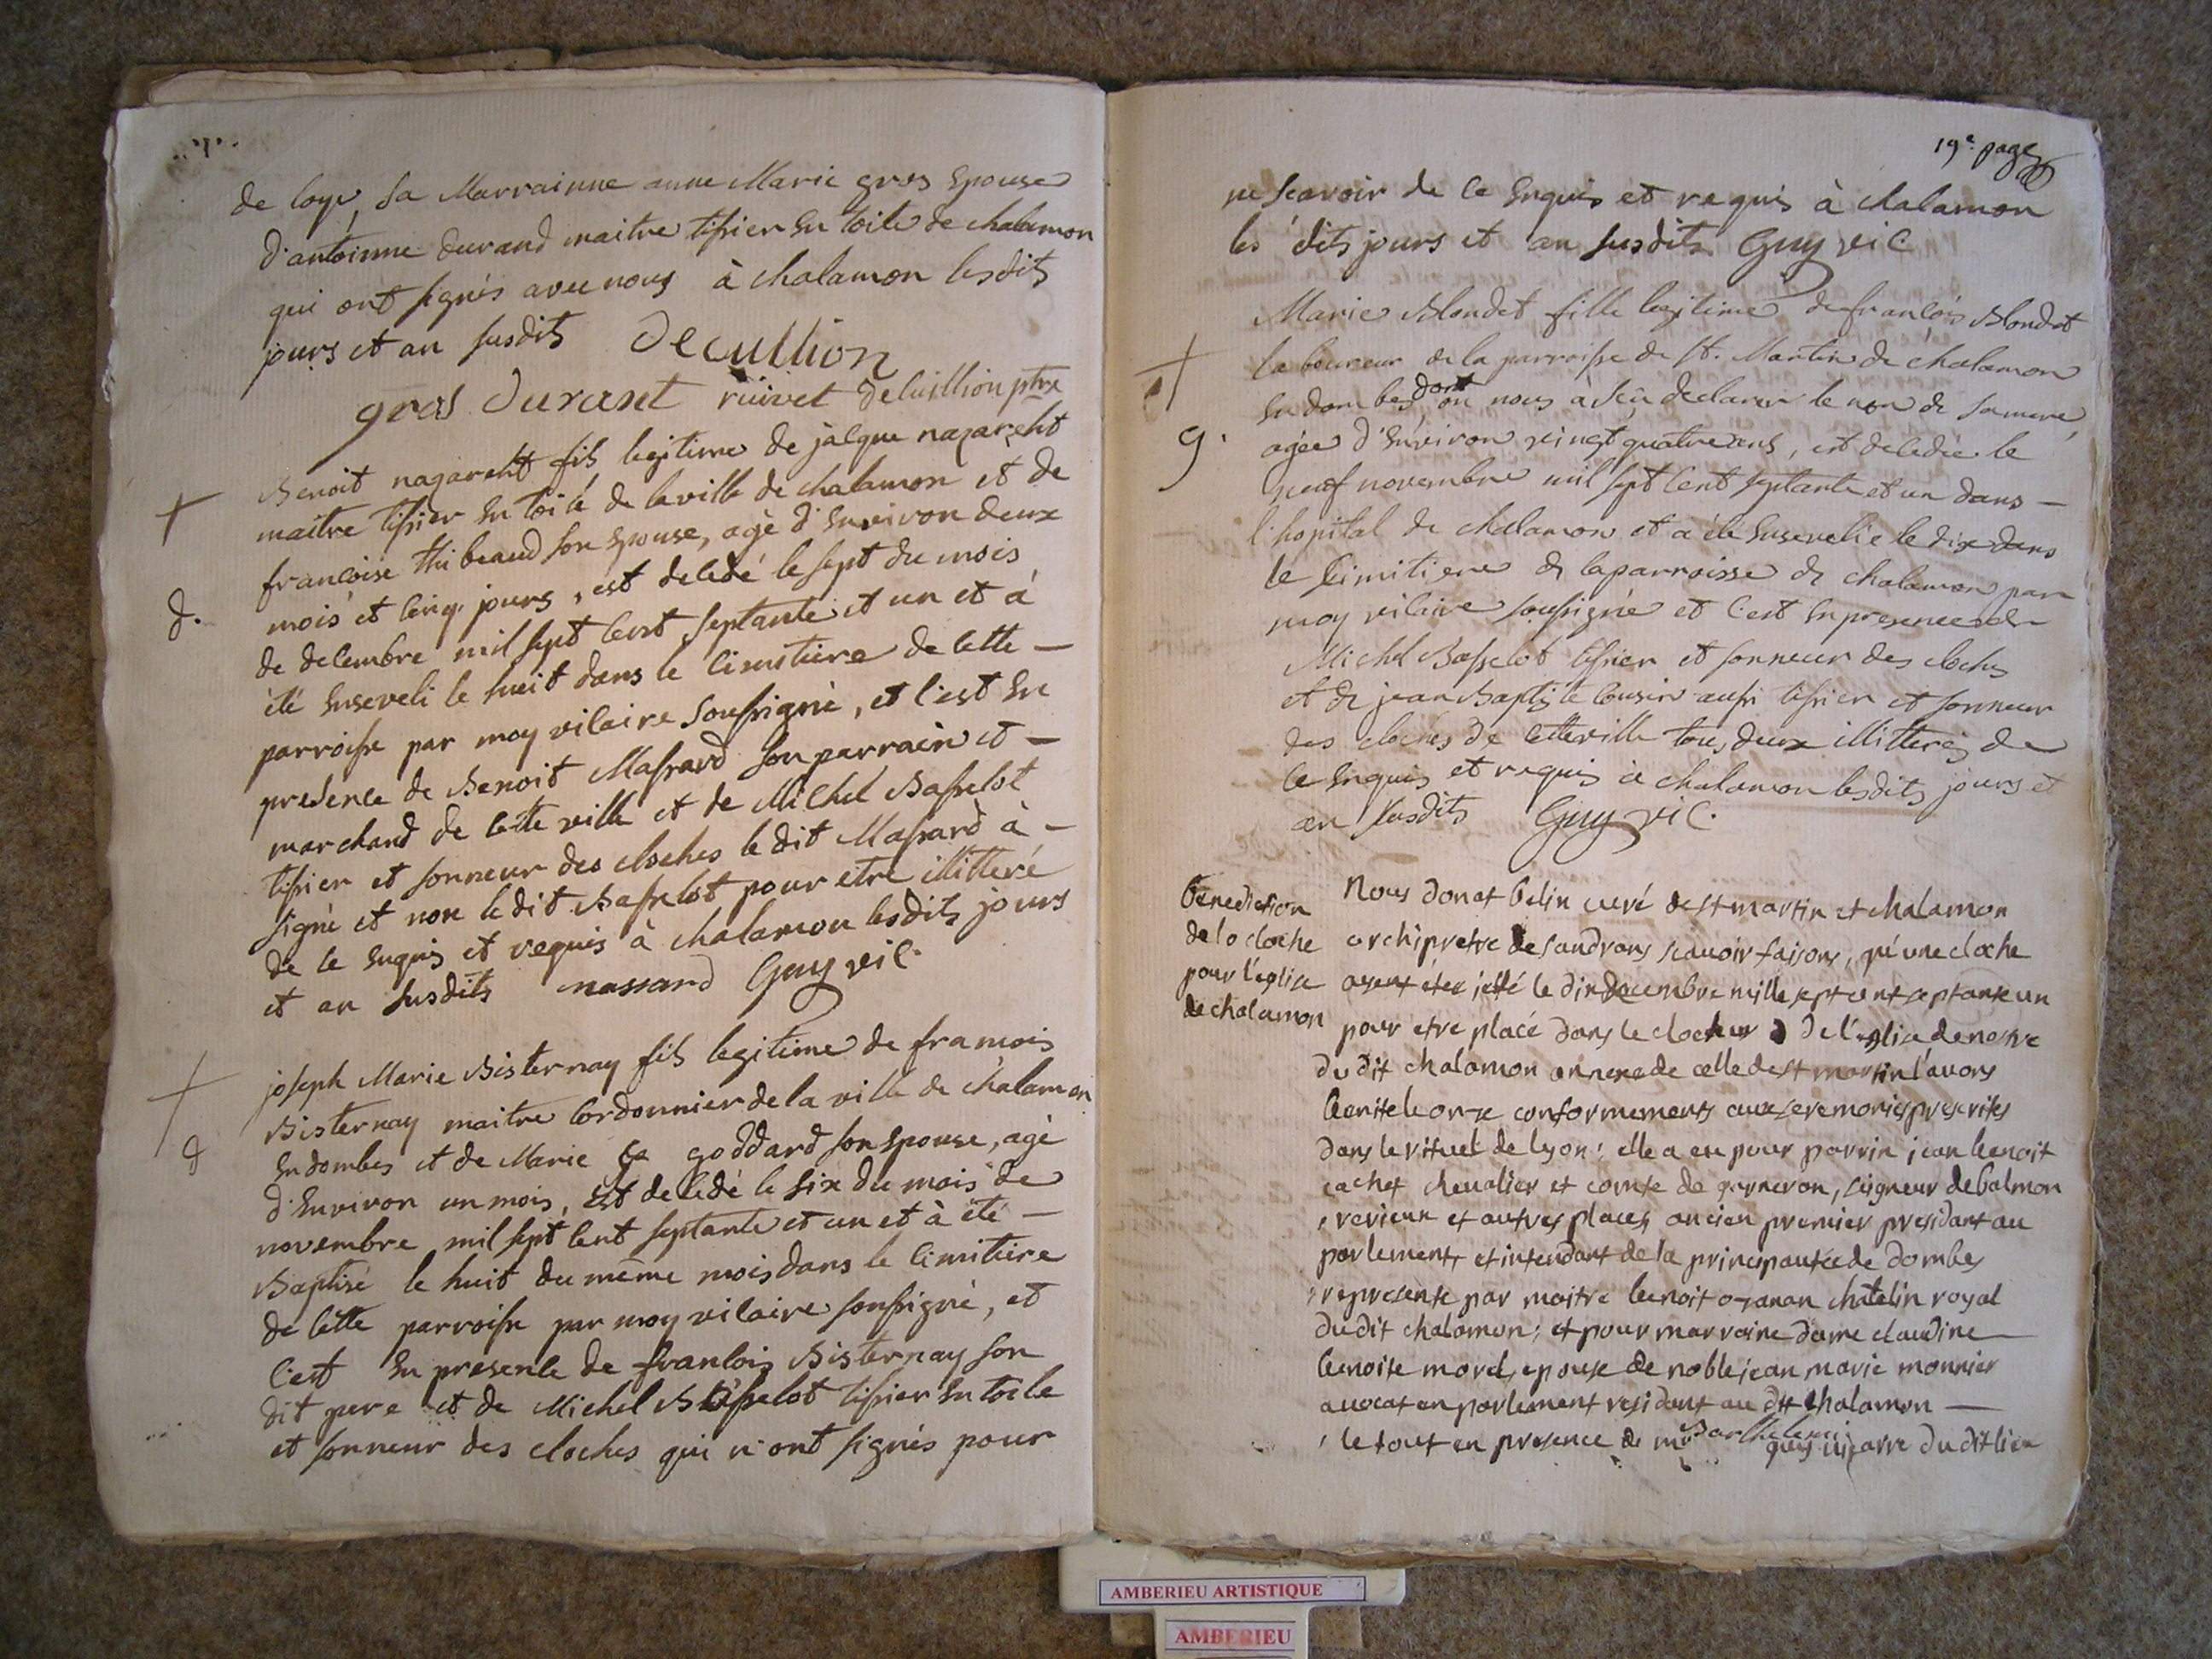 de loye, sa Marrainne anne Marie gros Epouse
d'antoinne durand maitre tissier en toile de chalamon
qui ont signés avec nous à chalamon lesdits
jours et an susdits Decuillion
gras Durant ruivet decuillion ptre
Benoit nazareht fils legitime de jacque nazareht
maitre tissier en toile de la ville de chalamon et de
francoise thibeaud son Epouse, agè d'environ deux
mois et cinq jours, est decedé le sept du mois
d.
de decembre mil sept cent septante et un et à
été enseveli le huit dans le cimitiere de cette —
parroisse par moy vicaire soussigné, et c'est en
presence de Benoit Massard son parrain et —
marchand de cette ville et de Michel Basselot
tissier et sonneur des cloches le dit Massard à —
signé et non le dit Basselot pour etre illitteré
de ce enquis et requis à chalamon lesdits jours
et an susdits massard Guy vic.
joseph Marie Bisternay fils legitime de francois
Bisternay maitre cordonnier de la ville de chalamon
d
en dombes et de Marie goddard son Epouse, agè
d'environ un mois, est decedé le six du mois de
novembre mil sept cent septante et un et à été —
Baptisé le huit du même mois dans le cimitiere
de cette parroisse par moy vicaire soussigné, et
c'est en presence de francois Bisternay son
dit pere et de Michel Basselot tissier en toile
et sonneur des cloches qui n'ont signés pour
19e page
ne scavoir de ce enquis et requis à chalamon
les dits jours et an susdits Guy vic
Marie Blondet fille legitime de francois Blondet
laboureur de la parroisse de St. Martin de chalamon
en dombes dont on nous à sçu declarer le nom de sa mere,
9.
agée d'environ vingt quatre ans, est decedée le
neuf novembre mil sept cent septante et un dans —
l'hopital de chalamon et a été ensevelie le dix dans
le cimitiere de la parroisse de chalamon par
moy vicaire soussigné et c'est en presence de
Michel Basselot tissier et sonneur des cloches
et de jean Baptiste cousin aussi tissier et sonneur
des cloches de cette ville tous deux illitterés de
ce enquis et requis à chalamon lesdits jours et
an susdits Guy vic.
benediction
de la cloche
pour l'eglise
de chalamon
Nous donat belin curé de st martin et chalamon
archipretre de sandrans scavoir faisons, qu'une cloche
ayant étée jetté le dix decembre mille sept cent septante un
pour etre placé dans le clocher de l'eglise de notre
du dit chalamon annexe de celle de st martin l'avons
benite le onze conformement aux ceremonies prescrites
dans le rituel de lyon: elle a eu pour parrin jean benoit
cachet chevalier et comte de garneron, seigneur de balmon
, revieux et autres places, ancien premier presidant au
parlement et intendant de la principautée de dombes
, representé par maitre benoit ozanan chatelin royal
du dit chalamon; et pour marraine dame claudine
benoite morel, epouse de noble jean marie monnier
avocat en parlement residant au dit chalamon —
, le tout en presence de mre Barthelemi guy vicaire du dit lieu
AMBERIEU ARTISTIQUE
AMBERIEU